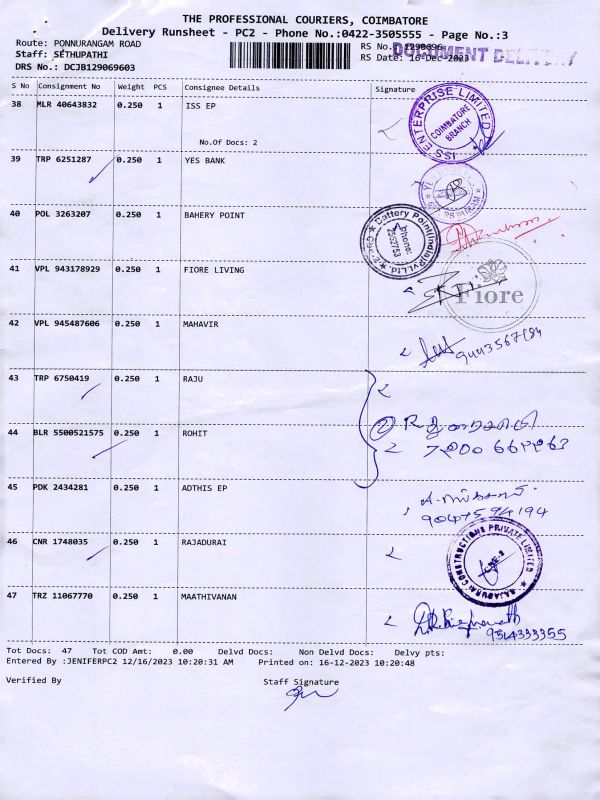 THE PROFESSIONAL COURIERS, COIMBATORE
Delivery Runsheet - PC2 - Phone No.:0422-3505555 - Page No.:3
Route: PONNURANGAM ROAD
Staff: SETHUPATHI
DRS No.: DCJB129069603
RS No.: 1290696
RS Date: 16-Dec-2023
DOCUMENT DELIVERY
S No Consignment No Weight PCS Consignee Details Signature
38 MLR 40643832 0.250 1 ISS EP
No.Of Docs: 2
ISS ENTERPRISE LIMITED
COIMBATORE
BRANCH
39 TRP 6251287 0.250 1 YES BANK
40 POL 3263207 0.250 1 BAHERY POINT
Cattery Point(India)Pvt.Ltd.
Phone:
2552753
41 VPL 943178929 0.250 1 FIORE LIVING
Fiore
42 VPL 945487606 0.250 1 MAHAVIR
43 TRP 6750419 0.250 1 RAJU
44 BLR 5500521575 0.250 1 ROHIT
45 PDK 2434281 0.250 1 ADTHIS EP
46 CNR 1748035 0.250 1 RAJADURAI
RAJADURAI CONSTRUCTIONS PRIVATE LIMITED
47 TRZ 11067770 0.250 1 MAATHIVANAN
9514333355
Tot Docs: 47 Tot COD Amt: 0.00 Delvd Docs: Non Delvd Docs: Delvy pts:
Entered By :JENIFERPC2 12/16/2023 10:20:31 AM Printed on: 16-12-2023 10:20:48
Verified By Staff Signature